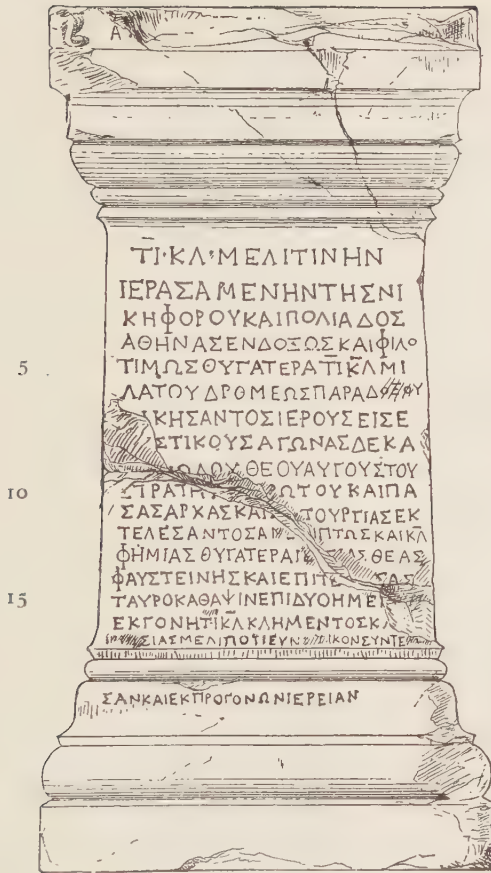 Α
ΤΙ·ΚΛ·ΜΕΛΙΤΙΝΗΝ
ΙΕΡΑΣΑΜΕΝΗΝΤΗΣΝΙ
ΚΗΦΟΡΟΥΚΑΙΠΟΛΙΑΔΟΣ
ΑΘΗΝΑΣΕΝΔΟΞΩΣΚΑΙΦΙΛΟ
5 ΤΙΜΩΣΘΥΓΑΤΕΡΑΤΙΚΛΜΙ
ΛΑΤΟΥΔΡΟΜΕΩΣΠΑΡΑΔΟΞΟΥ
ΙΚΗΣΑΝΤΟΣΙΕΡΟΥΣΕΙΣΕ
ΣΤΙΚΟΥΣΑΓΩΝΑΣΔΕΚΑ
ΘΕΟΥΑΥΓΟΥΣΤΟΥ
10 ΣΤΡΑΤΗ ΩΤΟΥΚΑΙΠΑ
ΣΑΣΑΡΧΑΣΚΑΙ ΤΟΥΡΓΙΑΣΕΚ
ΤΕΛΕΣΑΝΤΟΣΑΜ ΠΤΩΣΚΑΙΚΛ
ΦΗΜΙΑΣΘΥΓΑΤΕΡΑ ΑΣΘΕΑΣ
ΦΑΥΣΤΕΙΝΗΣΚΑΙΕΠΙΤΕ ΣΑΣ
15 ΤΑΥΡΟΚΑΘΑΨΙΝΕΠΙΔΥΟΗΜΕ
ΕΚΓΟΝΗΤΙΚΛΚΛΗΜΕΝΤΟΣΚΛ
ΣΙΑΣΜΕΛΙΠΟΤΙΕΥΝ ΙΚΟΝΣΥΝΤΕ
ΣΑΝΚΑΙΕΚΠΡΟΓΟΝΩΝΙΕΡΕΙΑΝ